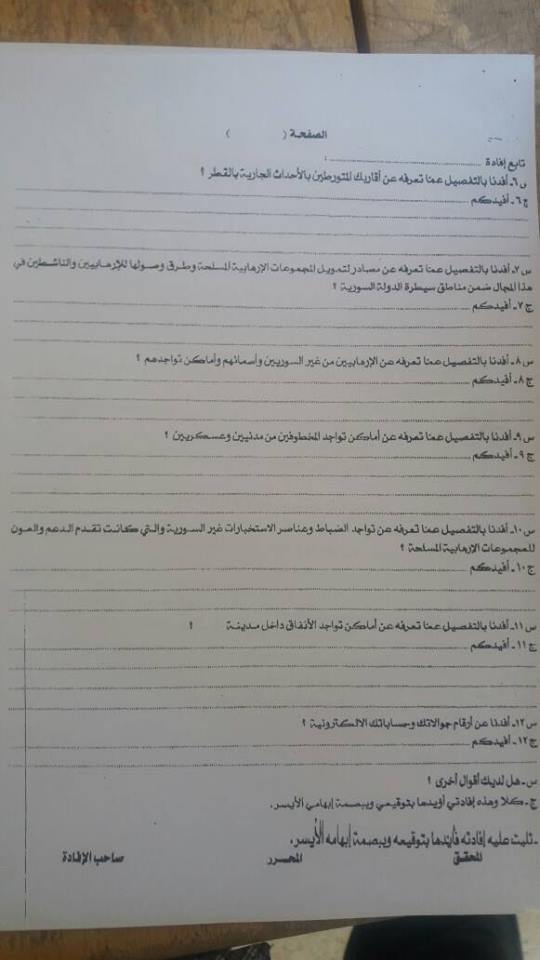 الصفحة (          )
تابع إفادة ........................ :
س٦ـ أفدنا بالتفصيل عمّا تعرفه عن أقاربك المتورطين بالأحداث الجارية بالقطر ؟
ج٦ـ أفيدكم
س٧ـ أفدنا بالتفصيل عمّا تعرفه عن مصادر لتمويل المجموعات الإرهابية المسلحة وطرق وصولها للإرهابيين والناشطين في
هذا المجال ضمن مناطق سيطرة الدولة السورية ؟
ج٧ـ أفيدكم
س٨ـ أفدنا بالتفصيل عمّا تعرفه عن الإرهابيين من غير السوريين وأسمائهم وأماكن تواجدهم ؟
ج٨ـ أفيدكم
س٩ـ أفدنا بالتفصيل عمّا تعرفه عن أماكن تواجد المخطوفين من مدنيين وعسكريين ؟
ج٩ـ أفيدكم
س١٠ـ أفدنا بالتفصيل عمّا تعرفه عن تواجد الضباط وعناصر الاستخبارات غير السورية والتي كانت تقدم الدعم والعون
للمجموعات الإرهابية المسلحة ؟
ج١٠ـ أفيدكم
س١١ـ أفدنا بالتفصيل عمّا تعرفه عن أماكن تواجد الأنفاق داخل مدينة          ؟
ج١١ـ أفيدكم
س١٢ـ أفدنا عن أرقام جوالاتك وحساباتك الالكترونية ؟
ج١٢ـ أفيدكم
س ـ هل لديك أقوال أخرى ؟
ج ـ كلا وهذه إفادتي أؤيدها بتوقيعي وببصمة إبهامي الأيسر.
ـ تليت عليه إفادته فأيدها بتوقيعه وببصمة إبهامه الأيسر.
المحقق          المحرر          صاحب الإفادة